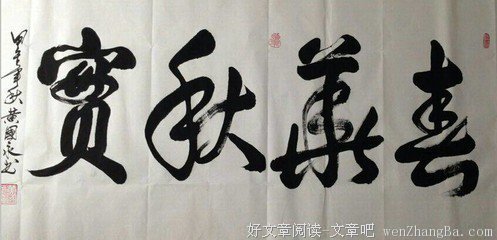 春華秋實
甲午年秋黄國
好文章阅读-文章吧 wenZhangBa.com